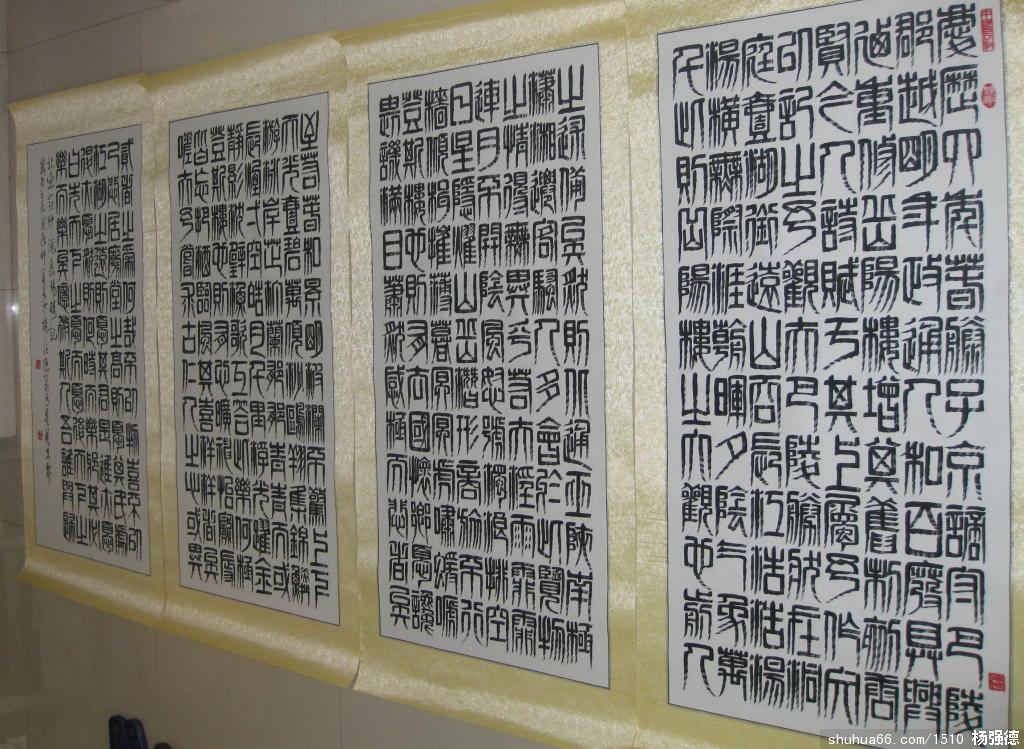 慶歷四年春滕子京謫守巴陵
郡越明年政通人和百廢具興
迺重修岳陽樓增其舊制刻唐
賢今人詩賦于其上屬予作文
以記之予觀夫巴陵勝狀在洞
庭壹湖銜遠山吞長江浩浩湯
湯橫無際涯朝暉夕陰氣象萬
千此則岳陽樓之大觀也前人
之述備矣然則北通巫峽南極
瀟湘遷客騷人多會於此覽物
之情得無異乎若夫淫雨霏霏
連月不開陰風怒號濁浪排空
日星隱耀山岳潛形商旅不行
檣傾楫摧薄暮冥冥虎嘯猿啼
登斯樓也則有去國懷鄉憂讒
畏譏滿目蕭然感極而悲者矣
至若春和景明波瀾不驚上下
天光壹碧萬頃沙鷗翔集錦鱗
游泳岸芷汀蘭郁郁青青而或
長煙弌空皓月千里浮光耀金
靜影沈璧漁歌互答此樂何極
登斯樓也則有心曠神怡寵辱
皆忘把酒臨風其喜洋洋者矣
嗟夫予嘗求古仁人之心或異
貳者之爲何哉不以物喜不以
己悲居廟堂之高則憂其民處
江湖之遠則憂其君是進亦憂
退亦憂然則何時而樂耶其必
曰先天下之憂而憂後天下之
樂而樂乎噫微斯人吾誰與歸
shuhua66.com/1510 杨强德